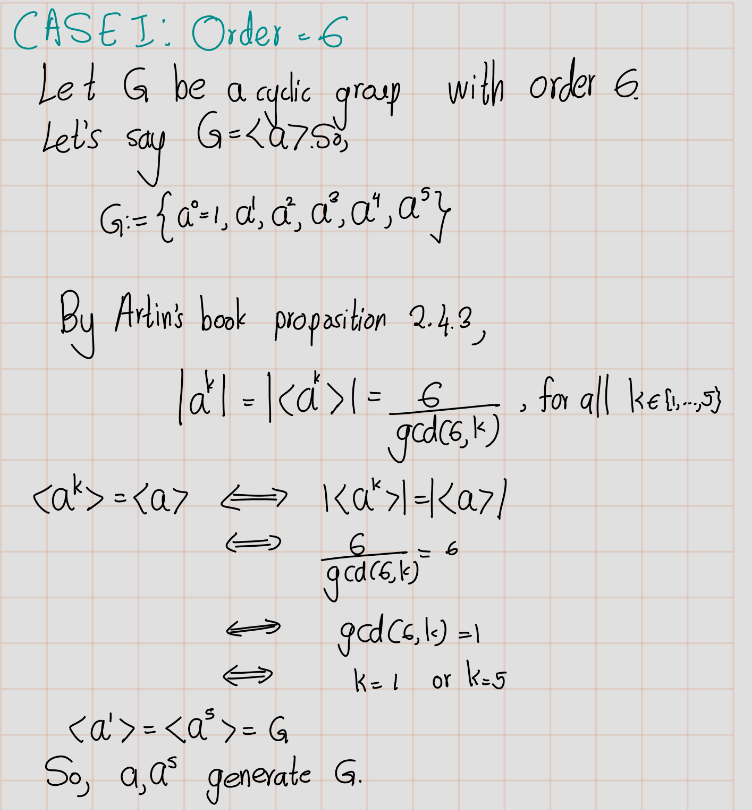 CASE I: Order = 6
Let G be a cyclic group with order 6.
Let's say G=<a>. So,
G:={a⁰=1, a¹, a², a³, a⁴, a⁵}
By Artin's book proposition 2.4.3,
|aᵏ| = |<aᵏ>| = 6/gcd(6,k) , for all k∈{1,...,5}
<aᵏ> = <a> ⟺ |<aᵏ>|=|<a>|
⟺ 6/gcd(6,k) = 6
⟺ gcd(6,k) = 1
⟺ k=1 or k=5
<a¹> = <a⁵> = G
So, a, a⁵ generate G.